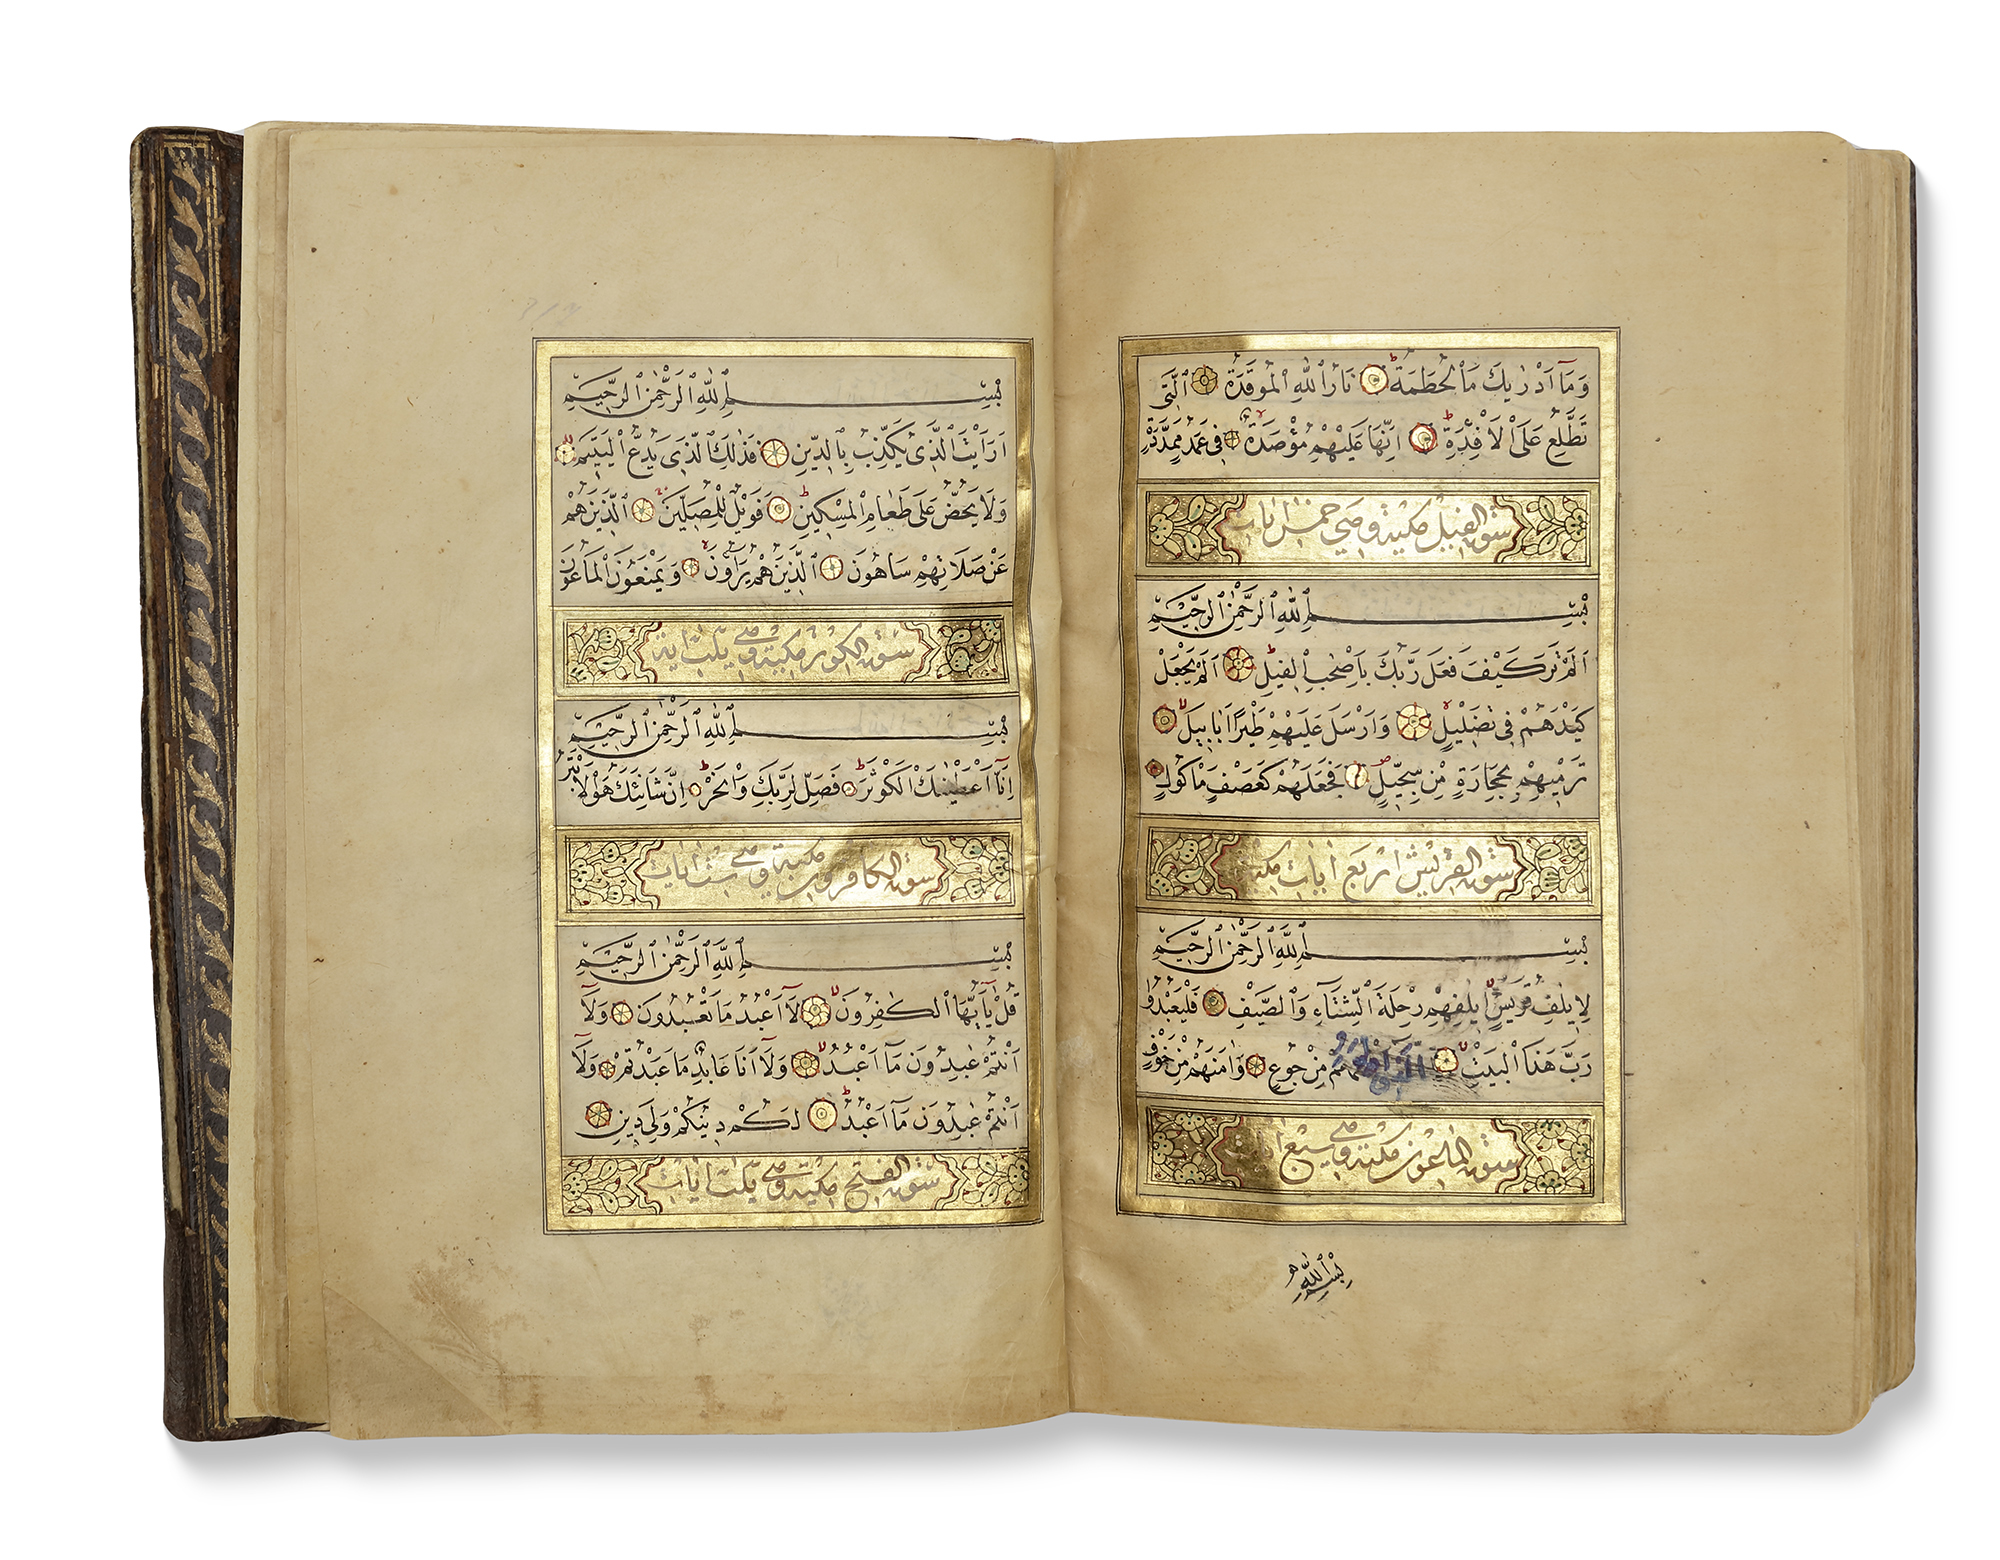 وَمَآ اَدْرٰيكَ مَا الْحُطَمَةُ نَارُ اللّٰهِ الْمُوقَدَةُ الَّتٖى
تَطَّلِعُ عَلَى الْاَفْـِٔدَةِ اِنَّهَا عَلَيْهِمْ مُؤْصَدَةٌ فٖى عَمَدٍ مُمَدَّدَةٍ
سورة الفيل مكية وهي خمس ايات
بِسْمِ اللّٰهِ الرَّحْمٰنِ الرَّحٖيمِ
اَلَمْ تَرَ كَيْفَ فَعَلَ رَبُّكَ بِاَصْحٰبِ الْفٖيلِ اَلَمْ يَجْعَلْ
كَيْدَهُمْ فٖى تَضْلٖيلٍ وَاَرْسَلَ عَلَيْهِمْ طَيْرًا اَبَابٖيلَ
تَرْمٖيهِمْ بِحِجَارَةٍ مِنْ سِجّٖيلٍ فَجَعَلَهُمْ كَعَصْفٍ مَاْكُولٍ
سورة القريش اربع ايات مكية
بِسْمِ اللّٰهِ الرَّحْمٰنِ الرَّحٖيمِ
لِاٖيلَافِ قُرَيْشٍ اٖيلَافِهِمْ رِحْلَةَ الشِّتَآءِ وَالصَّيْفِ فَلْيَعْبُدُوا
رَبَّ هٰذَا الْبَيْتِ مِنْ جُوعٍ وَاٰمَنَهُمْ مِنْ خَوْفٍ
سورة الماعون مكية وهي سبع ايات
بِسْمِ اللّٰهِ
بِسْمِ اللّٰهِ الرَّحْمٰنِ الرَّحٖيمِ
اَرَاَيْتَ الَّذٖى يُكَذِّبُ بِالدّٖينِ فَذٰلِكَ الَّذٖى يَدُعُّ الْيَتٖيمَ
وَلَا يَحُضُّ عَلٰى طَعَامِ الْمِسْكٖينِ فَوَيْلٌ لِلْمُصَلّٖينَ الَّذٖينَ هُمْ
عَنْ صَلَاتِهِمْ سَاهُونَ الَّذٖينَ هُمْ يُرَاؤُنَ وَيَمْنَعُونَ الْمَاعُونَ
سورة الكوثر مكية وهي ثلث اية
بِسْمِ اللّٰهِ الرَّحْمٰنِ الرَّحٖيمِ
اِنَّآ اَعْطَيْنَاكَ الْكَوْثَرَ فَصَلِّ لِرَبِّكَ وَانْحَرْ اِنَّ شَانِئَكَ هُوَ الْاَبْتَرُ
سورة الكافرون مكية وهي ست ايات
بِسْمِ اللّٰهِ الرَّحْمٰنِ الرَّحٖيمِ
قُلْ يَآ اَيُّهَا الْكٰفِرُونَ لَآ اَعْبُدُ مَا تَعْبُدُونَ وَلَآ
اَنْتُمْ عٰبِدُونَ مَآ اَعْبُدُ وَلَآ اَنَا عَابِدٌ مَا عَبَدْتُمْ وَلَآ
اَنْتُمْ عٰبِدُونَ مَآ اَعْبُدُ لَكُمْ دٖينُكُمْ وَلِىَ دٖينِ
سورة الفتح مكية وهي ثلث ايات